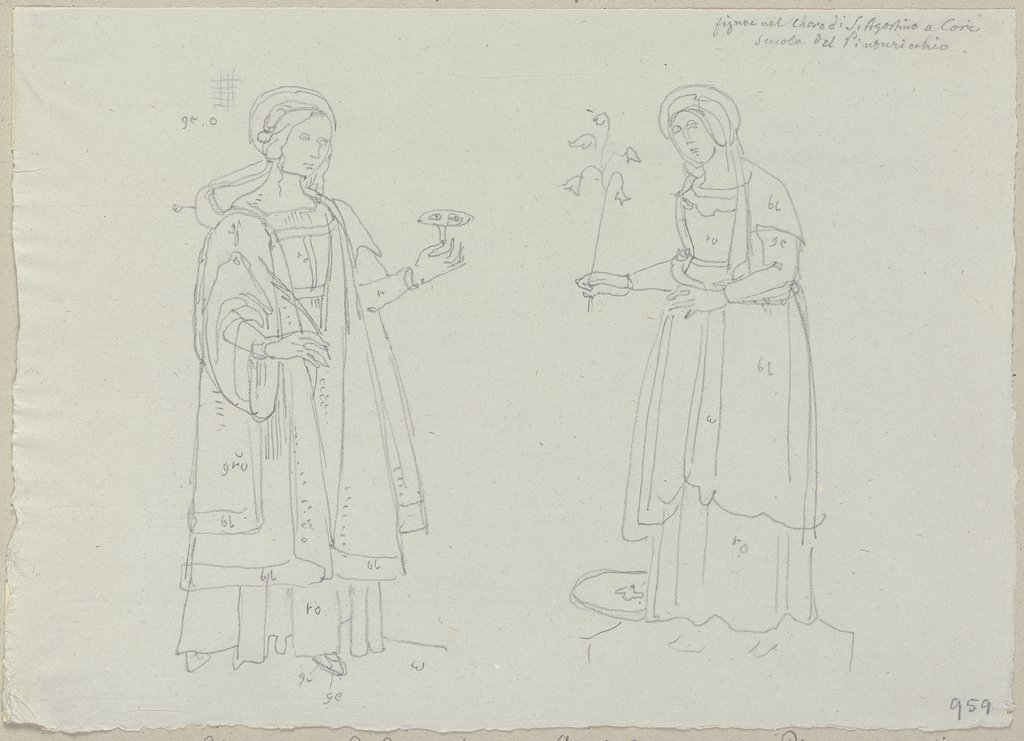 figure nel Choro di S. Agostino a Cori
scuola del Pinturicchio.
ge.o
w
gl
ro
r
gro
gl
gl
gl
ro
w
ge
ge
gl
ro
ge
gl
w
ro
959